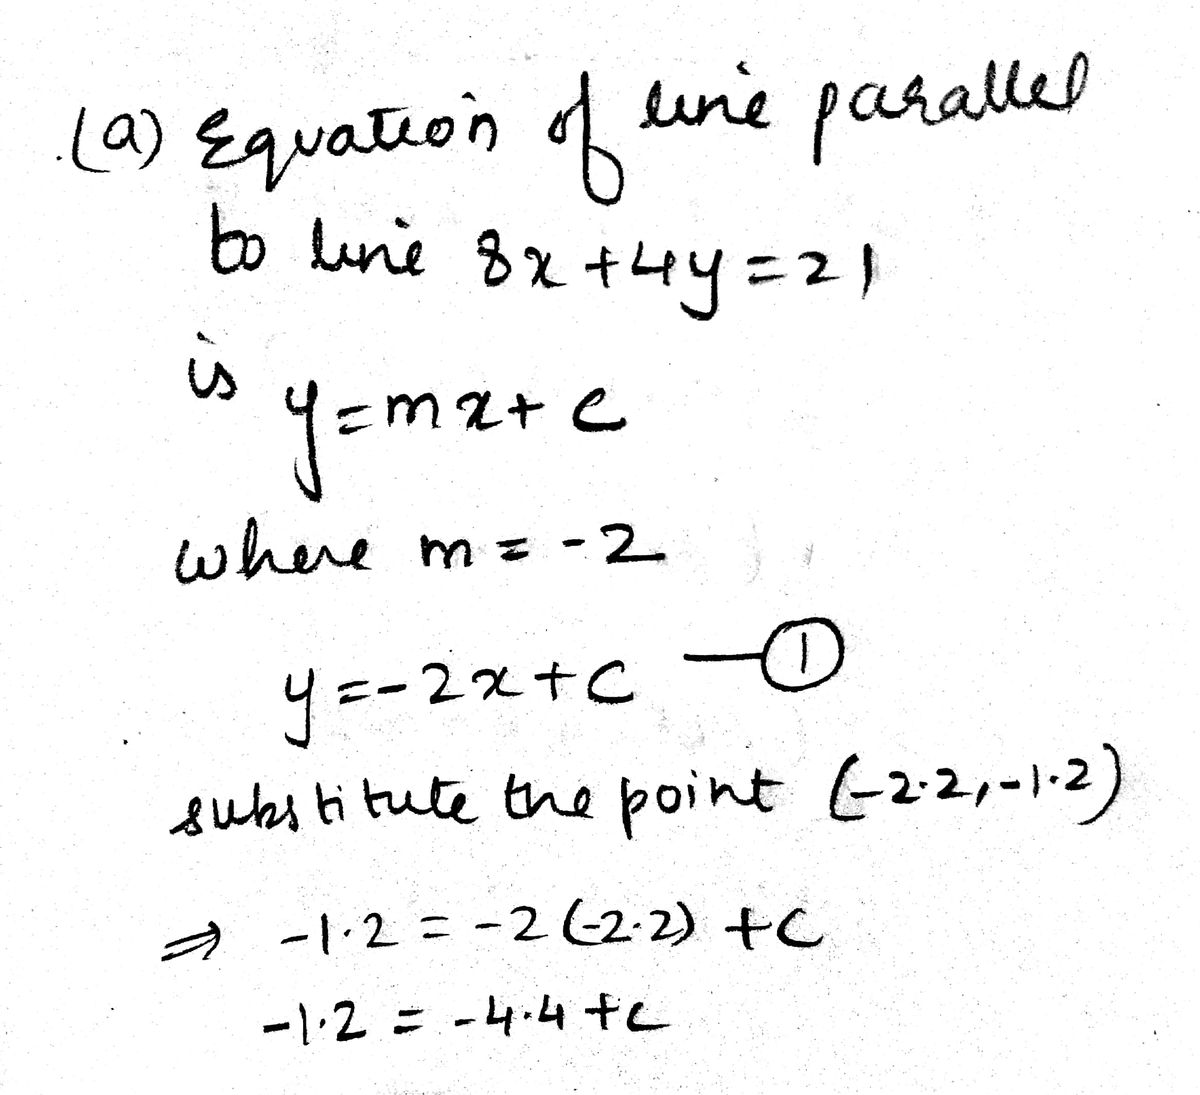 (a) Equation of line parallel
to line 8x + 4y = 21
is
y = mx + c
where m = -2
y = -2x + c —①
substitute the point (-2.2, -1.2)
⇒ -1.2 = -2(-2.2) + c
-1.2 = -4.4 + c